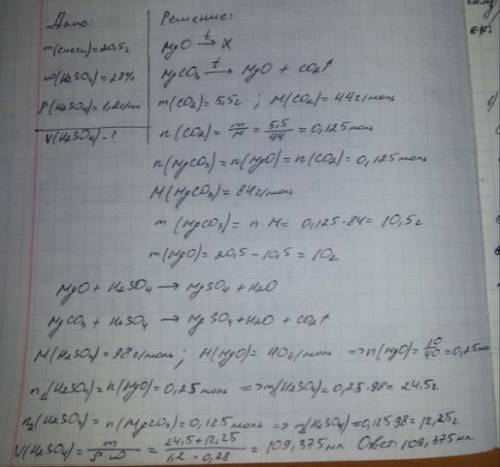 Дано:
m(смеси)=20,5г
ω(H2SO4)=28%
ρ(H2SO4)=1,2г/мл
V(H2SO4)-?
Решение:
MgO →t X
MgCO3 →t MgO + CO2↑
m(CO2)=5,5г ; M(CO2)=44г/моль
n(CO2)= m/M = 5,5/44 = 0,125моль
n(MgCO3)=n(MgO)=n(CO2)=0,125моль
M(MgCO3)=84г/моль
m(MgCO3)= n·M= 0,125·84= 10,5г
m(MgO)= 20,5-10,5=10г
MgO + H2SO4 → MgSO4 + H2O
MgCO3 + H2SO4 → MgSO4+H2O + CO2↑
M(H2SO4)=98г/моль; M(MgO)= 40г/моль =>n(MgO)= 10/40 =0,25моль
n1(H2SO4)=n(MgO)=0,25моль =>m(H2SO4)=0,25·98= 24,5г
n2(H2SO4)= n(MgCO3)=0,125моль => m(H2SO4)=0,125·98= 12,25г
V(H2SO4)= m/ρ·ω = 24,5+12,25/1,2·0,28 = 109,375мл Ответ:109,375мл